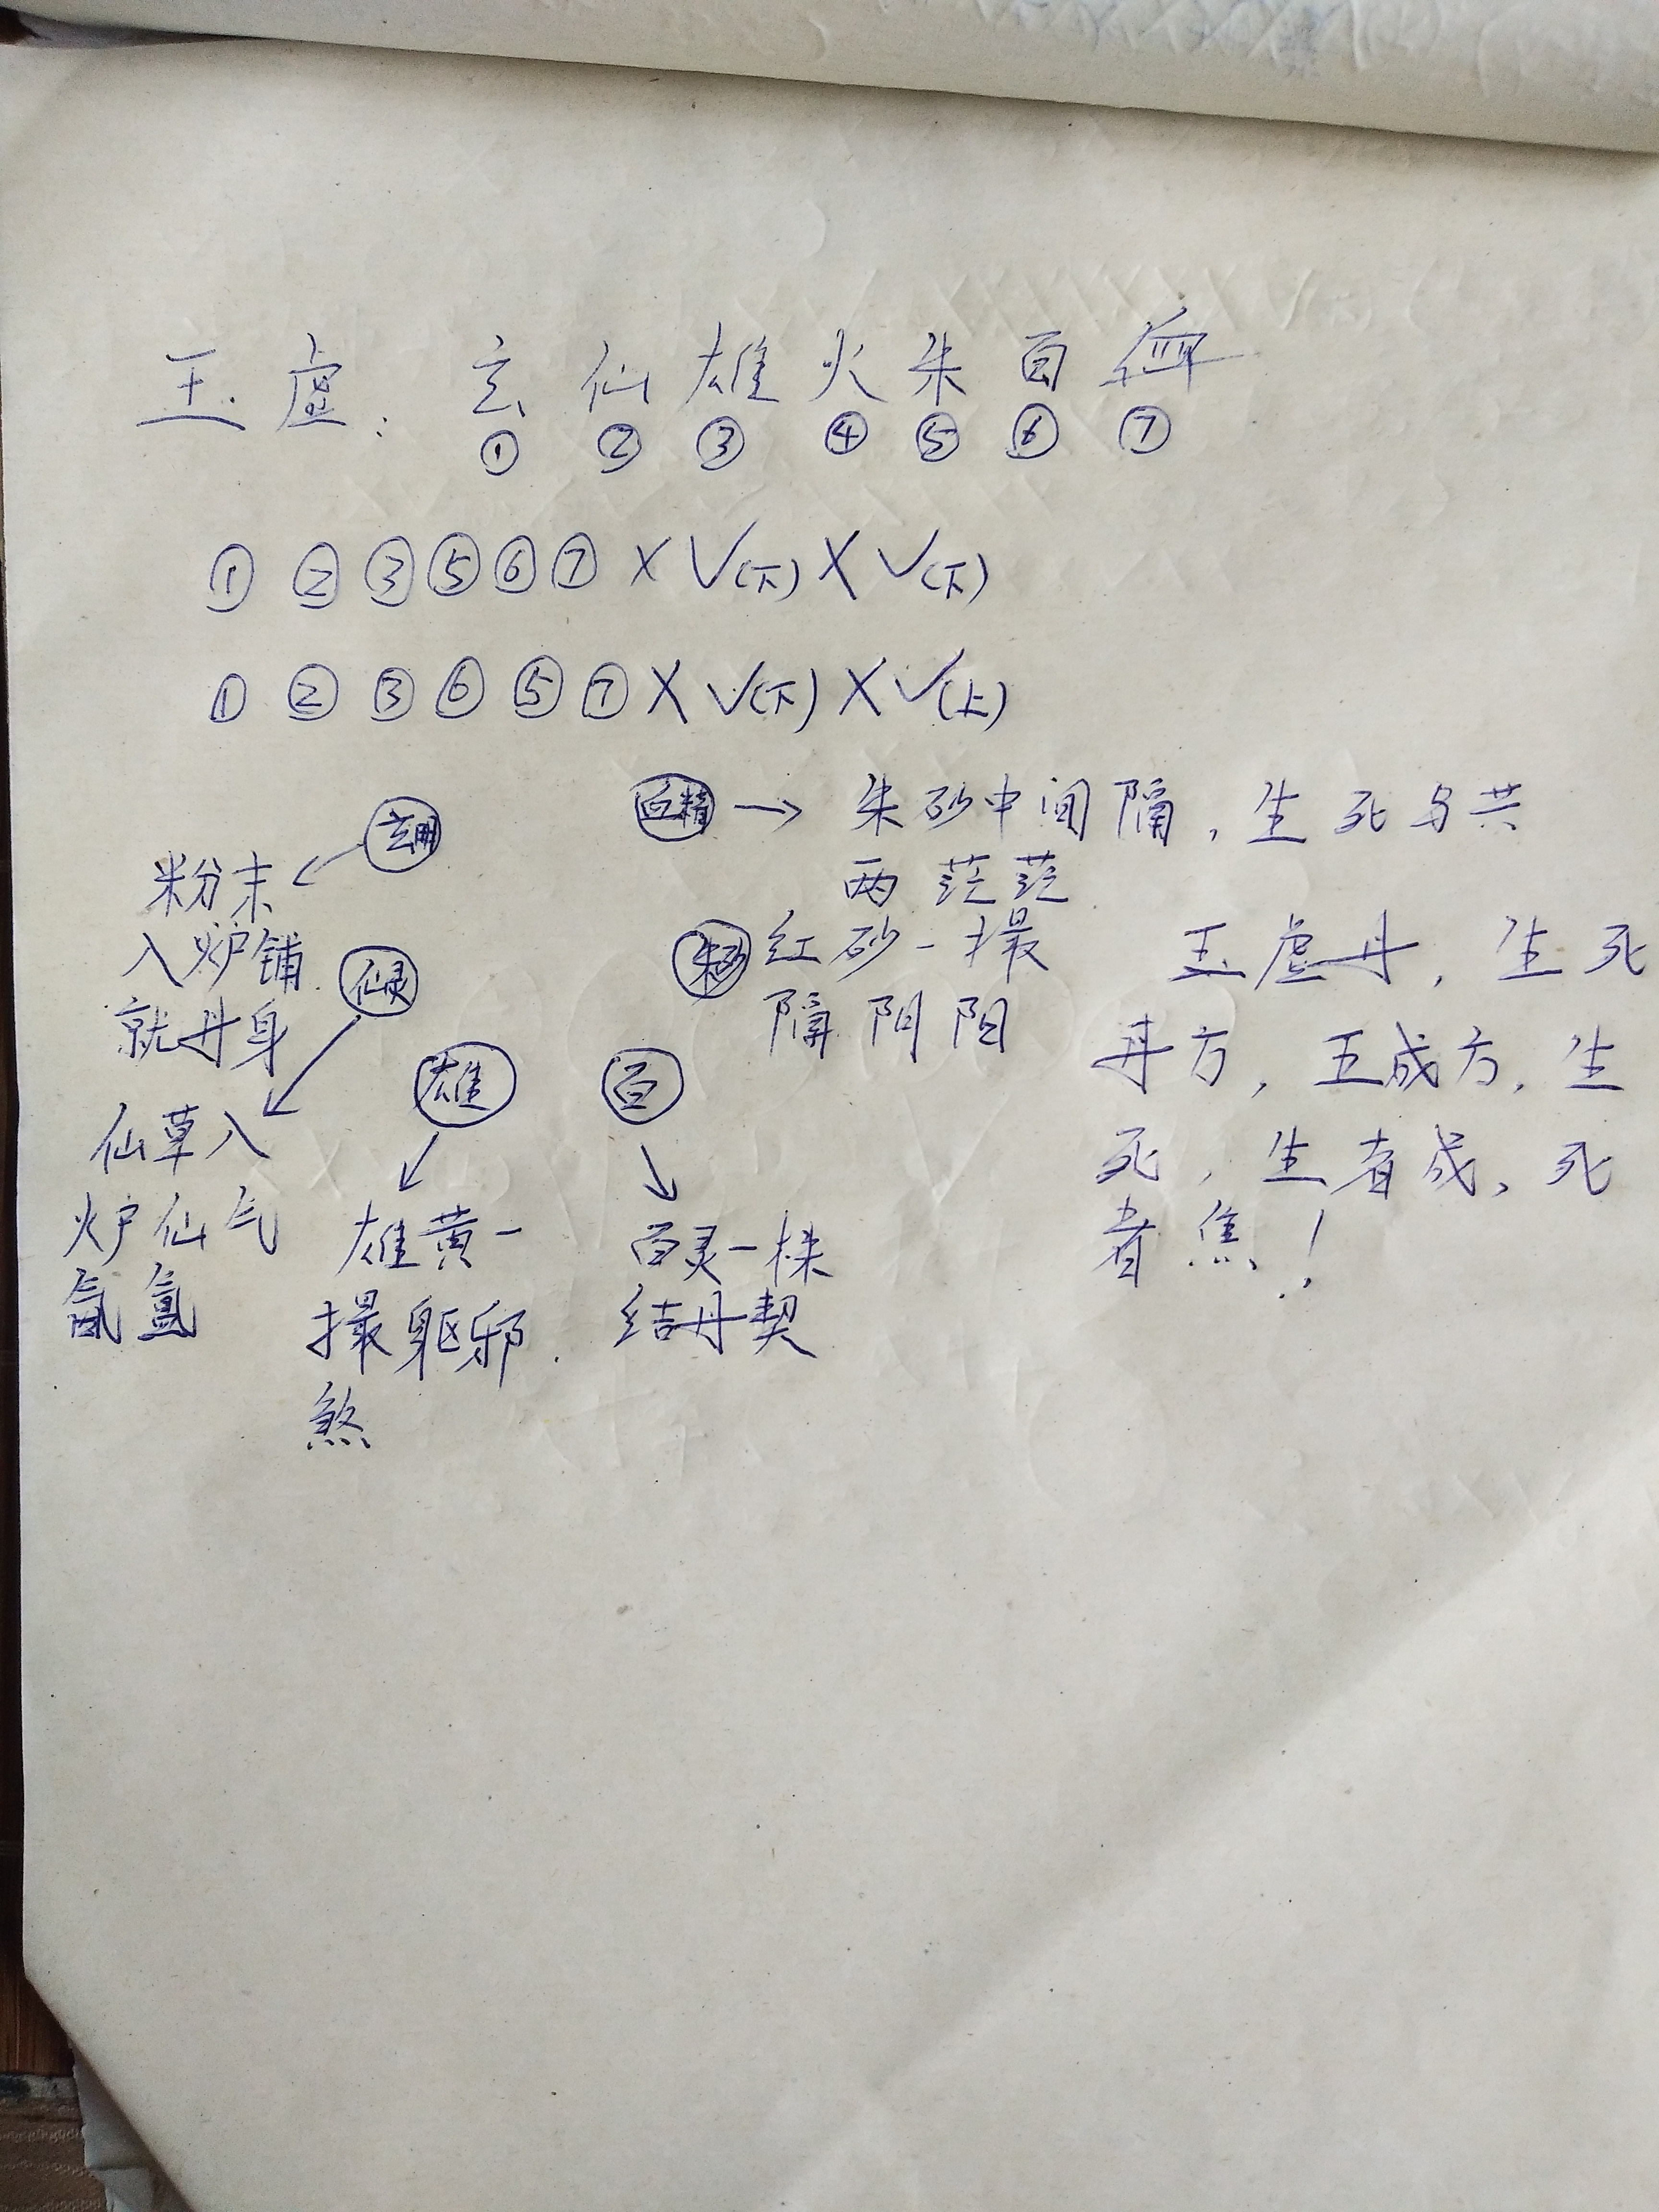 玉虚：玄仙雄火朱百
① ② ③ ④ ⑤ ⑥ ⑦
① ② ③ ⑤ ⑥ ⑦ × √(下) × √(下)
① ② ③ ⑥ ⑤ ⑦ × √(下) × √(上)
玄明
粉末
入炉铺
就丹身
仙灵
仙草入
炉仙气
氤氲
雄
雄黄一
撮躯邪.
煞
百
百灵一株
结丹契
→ 朱砂中间隔，生死与共
两茫茫
朱砂
红砂一撮
隔阴阳
玉虚丹，生死
丹方，五成方，生
死，生者成，死
者焦！